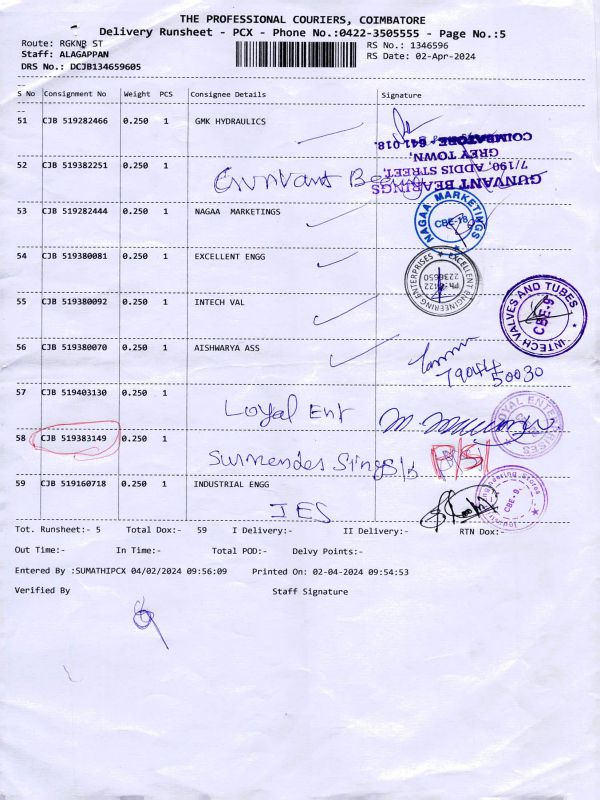 THE PROFESSIONAL COURIERS, COIMBATORE
Delivery Runsheet - PCX - Phone No.:0422-3505555 - Page No.:5
Route: RGKNR ST
RS No.: 1346596
Staff: ALAGAPPAN
RS Date: 02-Apr-2024
DRS No.: DCJB134659605
S No Consignment No Weight PCS Consignee Details Signature
51 CJB 519282466 0.250 1 GMK HYDRAULICS
GUNVANT BEARINGS
7/190, ADDIS STREET,
GREY TOWN,
COIMBATORE 641-018.
52 CJB 519382251 0.250 1
Gunvant Bearing
53 CJB 519282444 0.250 1 NAGAA MARKETINGS
NAGAA MARKETINGS
CBE-18
54 CJB 519380081 0.250 1 EXCELLENT ENGG
EXCELLENT ENGINEERING ENTERPRISES
55 CJB 519380092 0.250 1 INTECH VAL
INTECH VALVES AND TUBES
CBE-9
56 CJB 519380070 0.250 1 AISHWARYA ASS
79044
50030
57 CJB 519403130 0.250 1
Loyal Ent
LOYAL ENTERPRISES
58 CJB 519383149 0.250 1
P/S/
59 CJB 519160718 0.250 1 INDUSTRIAL ENGG
IES
Engineering Stores
CBE-9.
Tot. Runsheet:- 5 Total Dox:- 59 I Delivery:- II Delivery:- RTN Dox:-
Out Time:- In Time:- Total POD:- Delvy Points:-
Entered By :SUMATHIPCX 04/02/2024 09:56:09 Printed On: 02-04-2024 09:54:53
Verified By Staff Signature